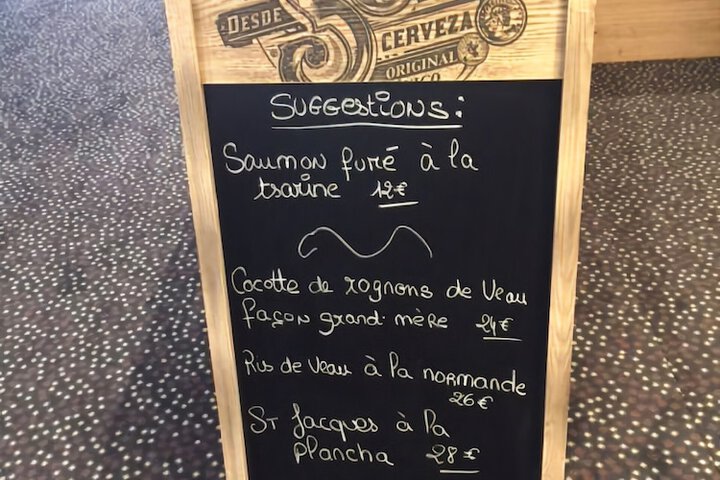 DESDE
CERVEZA
ORIGINAL
SUGGESTIONS:
SAUMON furé à la
tsarine 12€
Cocotte de rognons de Veau
façon grand-mère 24€
Ris de Veau à la normande
26€
ST Jacques à la
plancha 28€